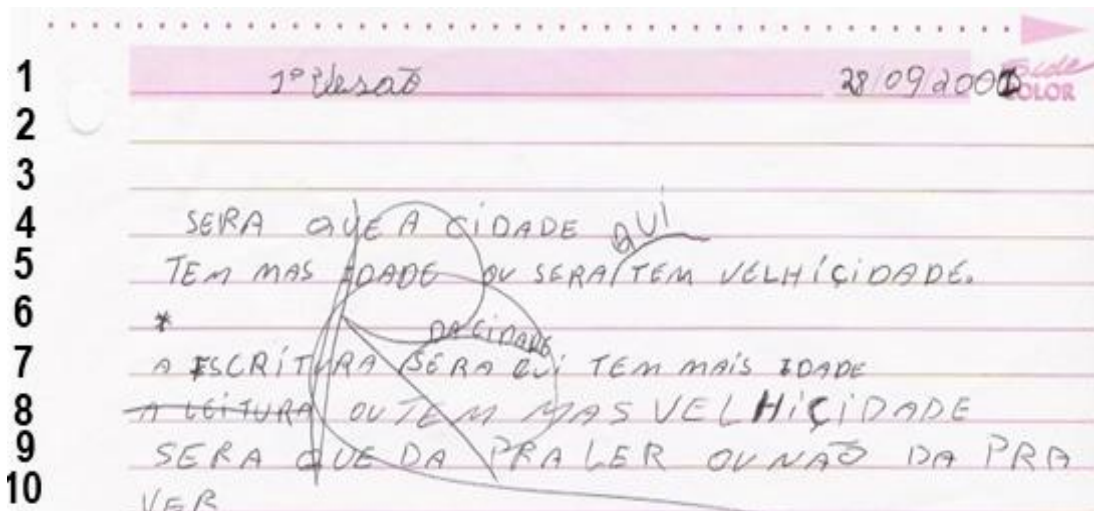 1 1º Vesaõ 28/09/2001 COLOR
2
3
4 SERA QUE A CIDADE
5 TEM MAS IDADE OU SERA QUI TEM VELHÍCIDADE.
6 *
DA CIDADE
7 A ESCRÍTURA SERA QUI TEM MAÍS IDADE
8 A LEITURA OU TEM MAS VELHIÇIDADE
9 SERA QUE DA PRA LER OU NAÕ DA PRA
10 VER